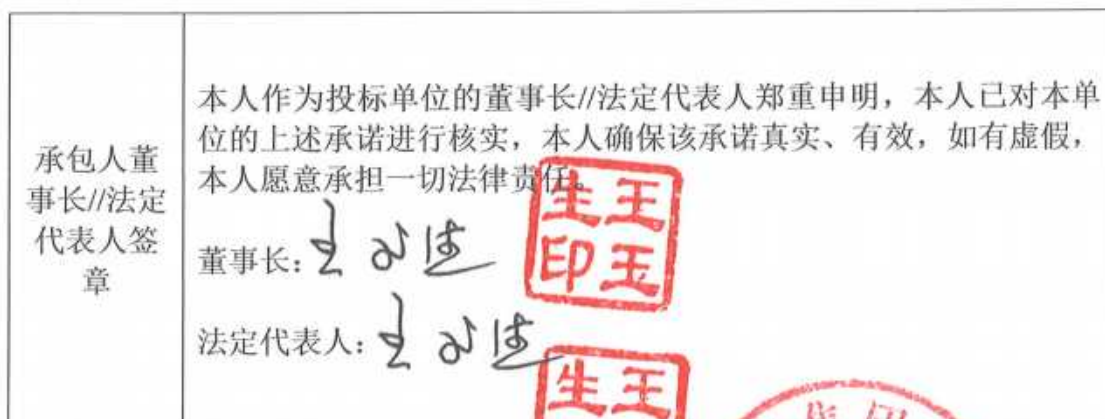 承包人董
事长//法定
代表人签
章
本人作为投标单位的董事长//法定代表人郑重申明，本人已对本单
位的上述承诺进行核实，本人确保该承诺真实、有效，如有虚假，
本人愿意承担一切法律责任。
董事长：王
王玉
生印
法定代表人：王
王
生